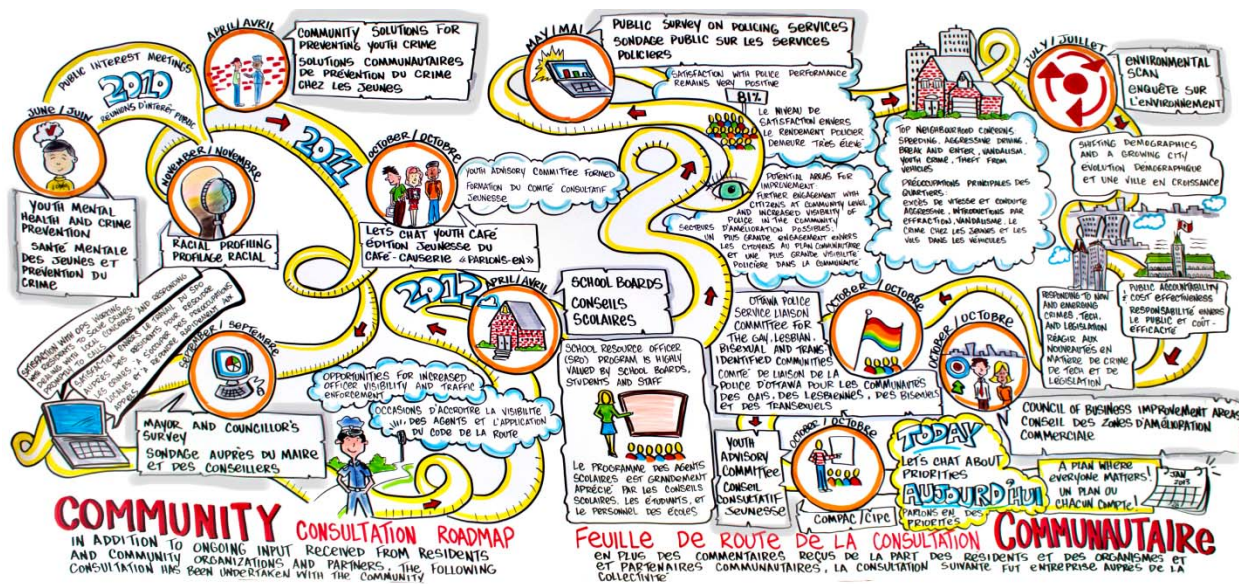 PUBLIC INTEREST MEETINGS
2010
RÉUNIONS D'INTÉRÊT PUBLIC
JUNE / JUIN
YOUTH MENTAL
HEALTH AND CRIME
PREVENTION
SANTÉ MENTALE
DES JEUNES ET
PRÉVENTION DU
CRIME
NOVEMBER / NOVEMBRE
RACIAL PROFILING
PROFILAGE RACIAL
APRIL / AVRIL
COMMUNITY SOLUTIONS FOR
PREVENTING YOUTH CRIME
SOLUTIONS COMMUNAUTAIRES
DE PRÉVENTION DU CRIME
CHEZ LES JEUNES
2011
OCTOBER / OCTOBRE
YOUTH ADVISORY COMMITTEE FORMED
FORMATION DU COMITÉ CONSULTATIF
JEUNESSE
LETS CHAT YOUTH CAFÉ
ÉDITION JEUNESSE DU
CAFÉ-CAUSERIE «PARLONS-EN»
SATISFACTION WITH OPS WORKING
WITH RESIDENTS TO SOLVE CRIMES
DEALING WITH LOCAL CONCERNS AND RESPONDING
PROMPTLY TO CALLS
SATISFACTION ENVERS LE TRAVAIL DU SPO
AUPRÈS DES RÉSIDENTS POUR RÉSOUDRE
LES CRIMES, S'OCCUPER DES PRÉOCCUPATIONS
LOCALES ET À RÉPONDRE RAPIDEMENT AUX
APPELS
SEPTEMBER / SEPTEMBRE
MAYOR AND COUNCILLOR'S
SURVEY
SONDAGE AUPRÈS DU MAIRE
ET DES CONSEILLERS
2012
APRIL / AVRIL
SCHOOL BOARDS
CONSEILS
SCOLAIRES
OPPORTUNITIES FOR INCREASED
OFFICER VISIBILITY AND TRAFFIC
ENFORCEMENT
OCCASIONS D'ACCROTRE LA VISIBILITÉ
DES AGENTS ET L'APPLICATION
DU CODE DE LA ROUTE
SCHOOL RESOURCE OFFICER
(SRO) PROGRAM IS HIGHLY
VALUED BY SCHOOL BOARDS,
STUDENTS AND STAFF
LE PROGRAMME DES AGENTS
SCOLAIRES EST GRANDEMENT
APRÉCIÉ PAR LES CONSEILS
SCOLAIRES, LES ÉTUDIANTS, ET
LE PERSONNEL DES ÉCOLES
MAY / MAI
PUBLIC SURVEY ON POLICING SERVICES
SONDAGE PUBLIC SUR LES SERVICES
POLICIERS
SATISFACTION WITH POLICE PERFORMANCE
REMAINS VERY POSITIVE
81%
LE NIVEAU DE
SATISFACTION ENVERS
LE RENDEMENT POLICIER
DEMEURE TRÈS ÉLEVÉ
POTENTIAL AREAS FOR
IMPROVEMENT:
FURTHER ENGAGEMENT WITH
CITIZENS AT COMMUNITY LEVEL
AND INCREASED VISIBILITY OF
POLICE IN THE COMMUNITY
SECTEURS D'AMÉLIORATION POSSIBLES:
UN PLUS GRANDE ENGAGEMENT ENVERS
LES CITOYENS AU PLAN COMMUNAUTAIRE
ET UNE PLUS GRANDE VISIBILITÉ
POLICIÈRE DANS LA COMMUNAUTÉ
TOP NEIGHBOURHOOD CONCERNS
SPEEDING, AGGRESSIVE DRIVING,
BREAK AND ENTER, VANDALISM,
YOUTH CRIME, THEFT FROM
VEHICLES
PRÉOCCUPATIONS PRINCIPALES DES
QUARTIERS:
EXCÈS DE VITESSE ET CONDUITE
AGGRESSIVE, INTRODUCTIONS PAR
EFFRACTION, VANDALISME, LE
CRIME CHEZ LES JEUNES ET LES
VOLS DANS LES VÉHICULES
JULY / JUILLET
ENVIRONMENTAL
SCAN
ENQUÊTE SUR
L'ENVIRONNEMENT
SHIFTING DEMOGRAPHICS
AND A GROWING CITY
EVOLUTION DEMOGRAPHIQUE
ET UNE VILLE EN CROISSANCE
PUBLIC ACCOUNTABILITY
& COST EFFECTIVENESS
RESPONSABILITÉ ENVERS
LE PUBLIC ET COÛT-
EFFICACITÉ
RESPONDING TO NEW
AND EMERGING
CRIMES, TECH,
AND LEGISLATION
RÉAGIR AUX
NOUVEAUTÉS EN
MATIÈRE DE CRIME
DE TECH ET DE
LÉGISLATION
OCTOBER / OCTOBRE
COUNCIL OF BUSINESS IMPROVEMENT AREAS
CONSEIL DES ZONES D'AMÉLIORATION
COMMERCIALE
OCTOBER / OCTOBRE
OTTAWA POLICE
SERVICE LIAISON
COMMITTEE FOR
THE GAY, LESBIAN,
BISEXUAL AND TRANS
IDENTIFIED COMMUNITIES
COMITÉ DE LIAISON DE LA
POLICE D'OTTAWA POUR LES COMMUNAUTÉS
DES GAIS, DES LESBIENNES, DES BISEXUELS
ET DES TRANSEXUELS
YOUTH
ADVISORY
COMMITTEE
CONSEIL
CONSULTATIF
JEUNESSE
OCTOBER / OCTOBRE
COMPAC/CIPC
TODAY
LETS CHAT ABOUT
PRIORITIES
AUJOURD'HUI
PARLONS EN DES
PRIORITÉS
A PLAN WHERE
EVERYONE MATTERS!
UN PLAN OU
CHACUN COMPTE!
JAN
2013
COMMUNITY CONSULTATION ROADMAP
IN ADDITION TO ONGOING INPUT RECEIVED FROM RESIDENTS
AND COMMUNITY ORGANIZATIONS AND PARTNERS, THE FOLLOWING
CONSULTATION HAS BEEN UNDERTAKEN WITH THE COMMUNITY
FEUILLE DE ROUTE DE LA CONSULTATION COMMUNAUTAIRE
EN PLUS DES COMMENTAIRES REÇUS DE LA PART DES RESIDENTS ET DES ORGANISMES ET
ET PARTENAIRES COMMUNAUTAIRES, LA CONSULTATION SUIVANTE FUT ENTREPRISE AUPRÈS DE LA
COLLECTIVITÉ